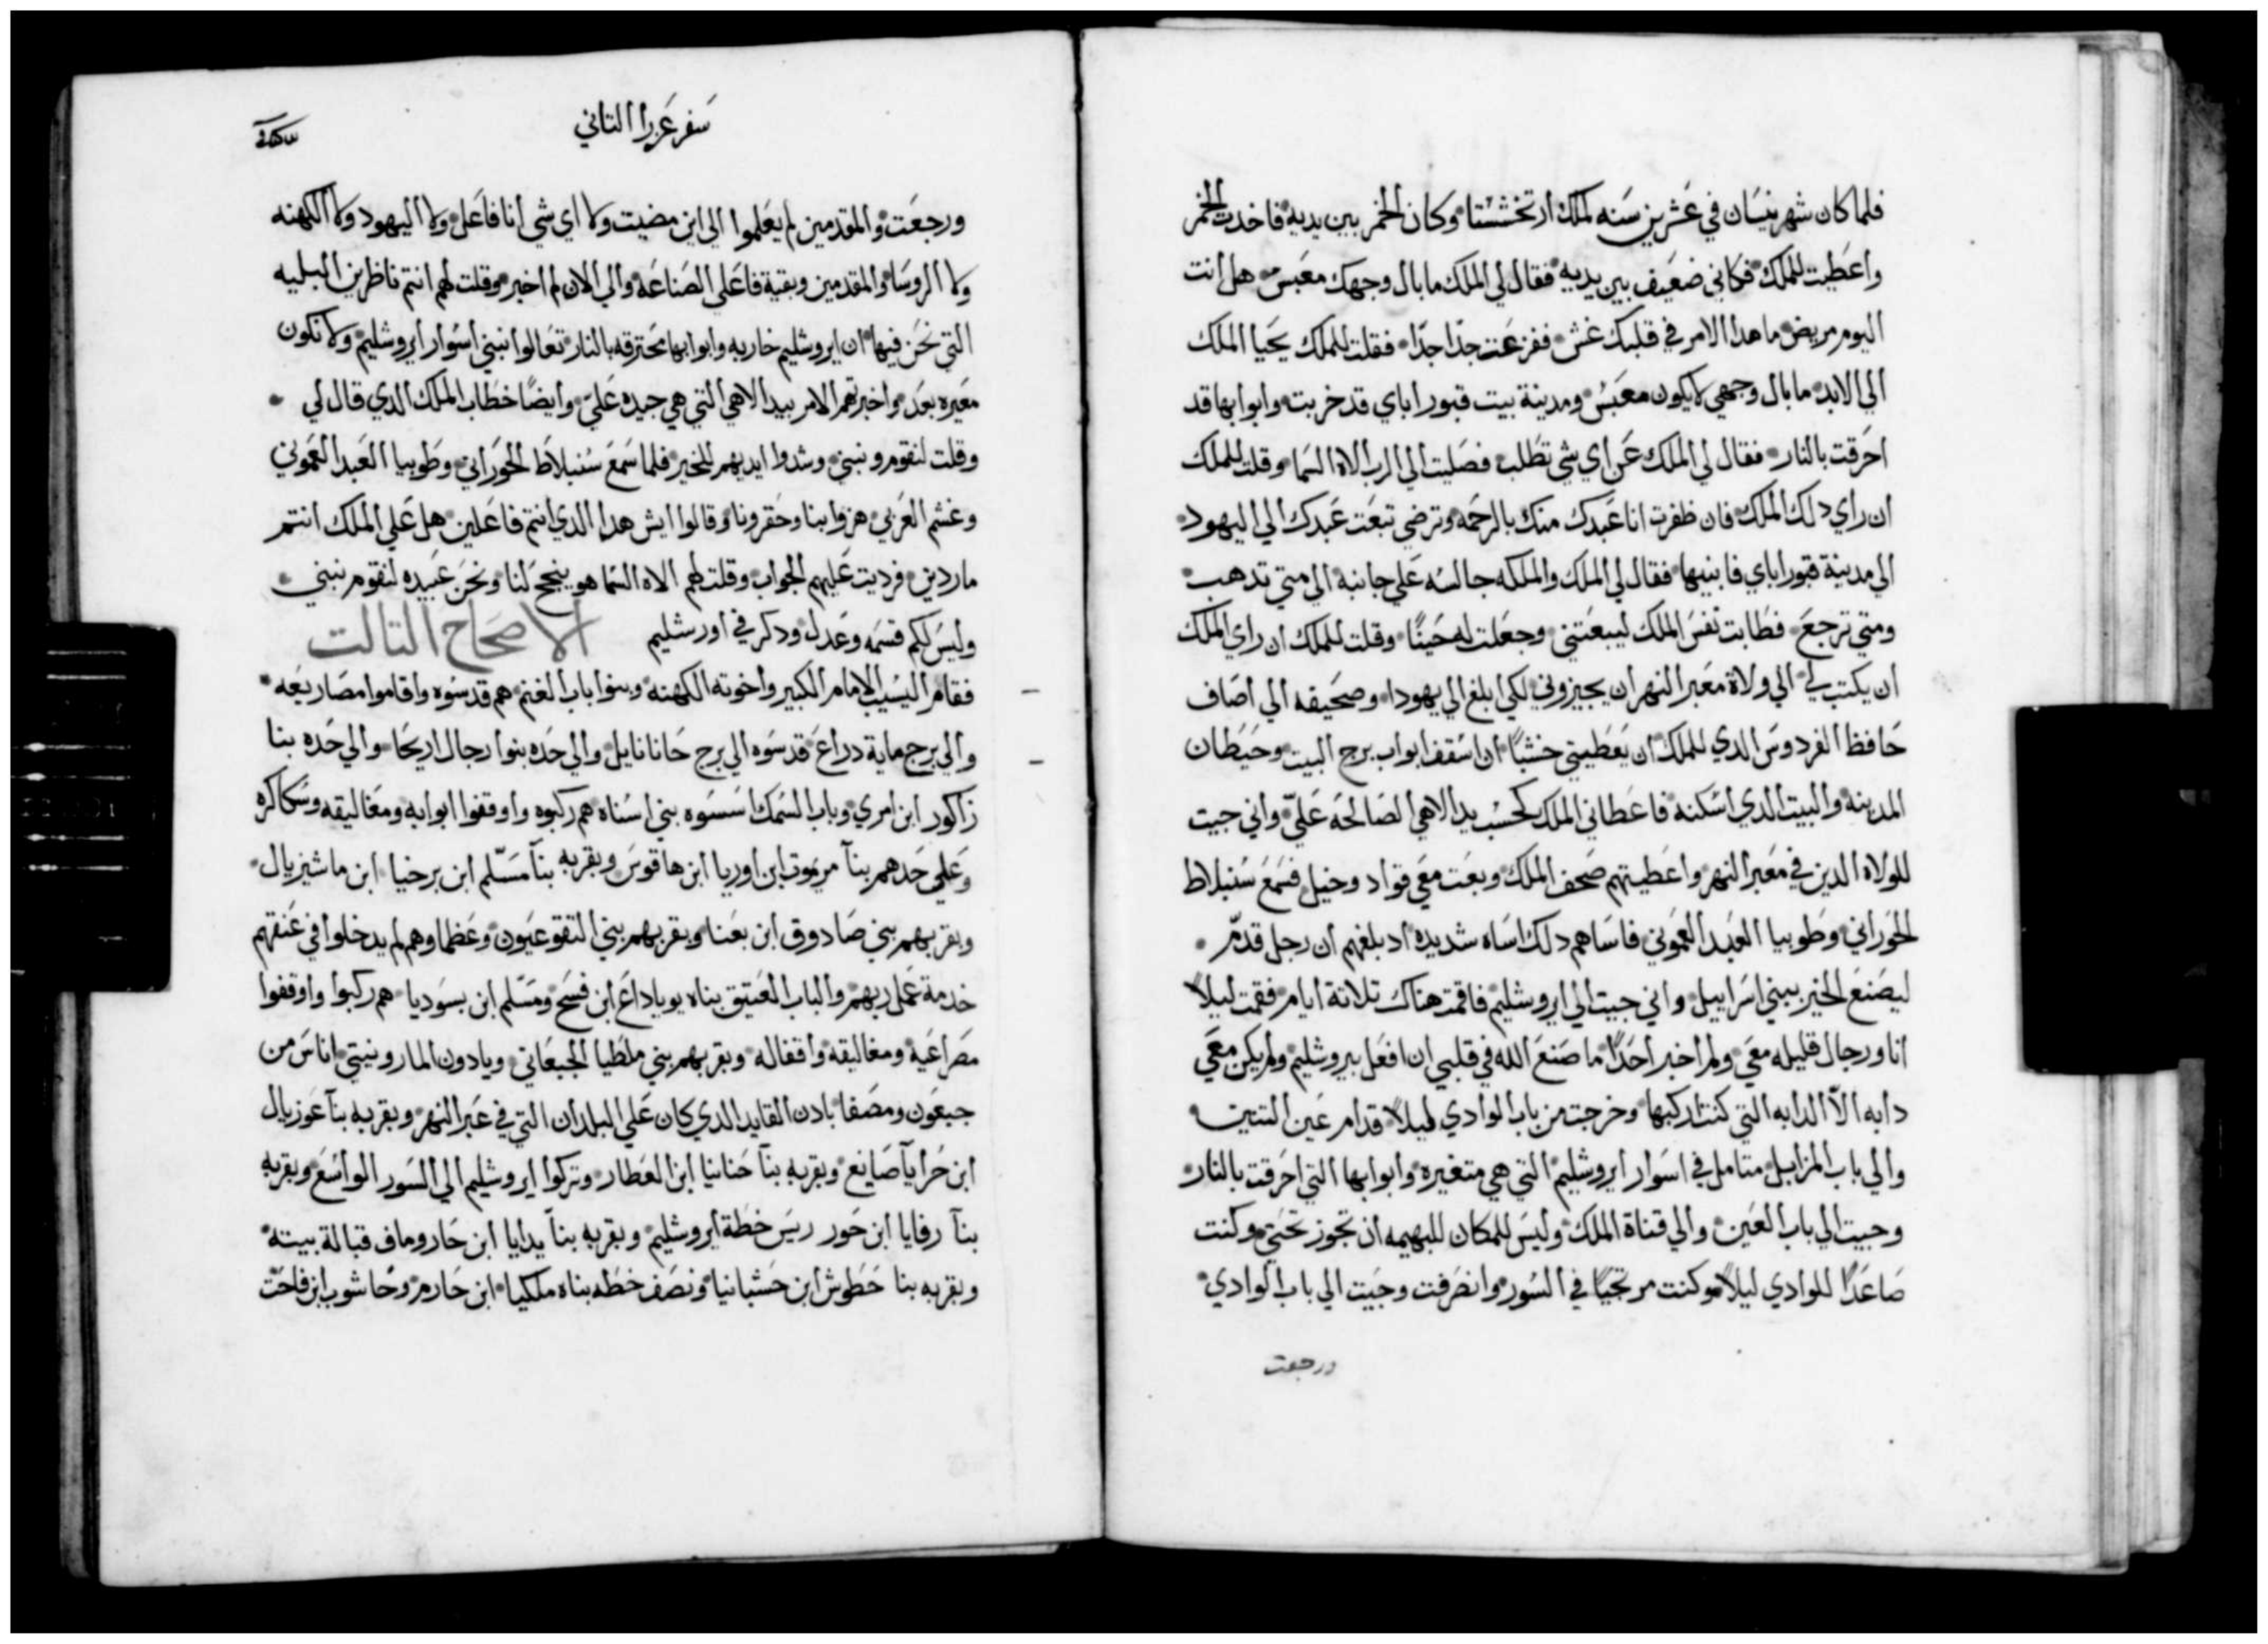 فلما كان شهر نيسان في عشرين سنه لملك ارتخششتا وكان الخمر بين يديه فاخدت الخمر
واعطيت للملك فكاني ضعيف بين يديه فقال لي الملك ما بال وجهك معبس هل انت
اليوم مريض ما هدا الامر في قلبك غش ففزعت جدا جدا فقلت للملك يحيا الملك
الي الابد ما بال وجهي لا يكون معبس ومدينة بيت قبور اباي قد خربت وابوابها قد
احرقت بالنار فقال لي الملك عن اي شي تطلب فصليت الي الرب الاه السما وقلت للملك
ان راي دلك الملك فان ظفرت انا عبدك منك بالرحمه وترضي تبعت عبدك الي اليهود
الي مدينة قبور اباي فابنيها فقال لي الملك والملكه جالسه علي جانبه الي متي تدهب
ومتي ترجع فطابت نفس الملك ليبعتني وجعلت له حينا وقلت للملك ان راي الملك
ان يكتب لي الي ولاة معبر النهر ان يجيزوني لكي ابلغ الي يهودا وصحيفه الي اصاف
حافظ الفردوس الدي للملك ان يعطيني خشبا ان اسقف ابواب برج البيت وحيطان
المدينه والبيت الدي اسكنه فاعطاني الملك كحسب يد الاهي الصالحه علي واني جيت
للولاه الدين في معبر النهر واعطيتهم صحف الملك وبعت معي قواد وخيل فسمع سنبلاط
الحوراني وطوبيا العبد العموني فاساهم دلك اساه شديده اد بلغهم ان رجل قدم
ليصنع الخير ببني اسراييل واني جيت الي ايروشليم فاقمت هناك تلاتة ايام فقمت ليلا
انا ورجال قليله معي ولم اخبر احدا ما صنع الله في قلبي ان افعل بيروشليم ولم يكن معي
دابه الا الدابه التي كنت اركبها وخرجت من باب الوادي ليلا قدام عين التنين
والي باب المزابل متامل في اسوار ايروشليم التي هي متغيره وابوابها التي احرقت بالنار
وجيت الي باب العين والي قناة الملك وليس للمكان للبهيمه ان تجوز تحتي وكنت
صاعدا للوادي ليلا وكنت مرتجيا في السور وانضرفت وجيت الي باب الوادي
ورجعت
سفر عزرا التاني
ورجعت والمقدمين لم يعلموا الي اين مضيت ولا اي شي انا فاعل ولا اليهود ولا الكهنه
ولا الروسا والمقدمين وبقية فاعلي الصناعه والي الان لم اخبر وقلت لهم انتم ناظرين البليه
التي نحن فيها ان ايروشليم خاربه وابوابها محترقه بالنار تعالوا نبني اسوار ايروشليم ولا نكون
معيره بعد واخبرتهم الامر بيد الاهي التي هي جيده علي وايضا خطاب الملك الدي قال لي
وقلت لنقوم ونبني وشدوا ايديهم للخير فلما سمع سنبلاط الحوراني وطوبيا العبد العموني
وغشم العربي هزوا بنا وحقرونا وقالوا ايش هدا الدي انتم فاعلين هل علي الملك انتم
ماردين فرديت عليهم الجواب وقلت لهم الاه السما هو ينجح لنا ونحن عبيده لنقوم نبني
وليس لكم قسمه وعدل ودكر في اورشليم الاصحاح التالت
فقام اليسيب الامام الكبير واخوته الكهنه وبنوا باب الغنم هم قدسوه واقاموا مصاريعه
والي برج ماية دراع قدسوه الي برج حانانايل والي حده بنوا رجال اريحا والي حده بنا
زاكور ابن امري وباب السمك اسسوه بني اسناه هم ركبوه واوقفوا ابوابه ومغاليقه وسكاكره
وعلي حدهم بنا مريموت ابن اوريا ابن هاقوس وبقربه بنا مسلم ابن برخيا ابن ماشيزيال
وبقربهم بني صادوق ابن بعنا وبقربهم بني التقوعيون وعظماوهم لم يدخلوا في عنقهم
خدمة عمل ربهم والباب العتيق بناه يوياداع ابن فسح ومسلم ابن بسوديا هم ركبوا واوقفوا
مصراعية ومغاليقه واقفاله وبقربهم بني ملطيا الجبعاني ويادون المارونيتي اناس من
جبعون ومصفا بادن القايد الدي كان علي البلدان التي في عبر النهر وبقربه بنا عوزيال
ابن حرايا صايغ وبقربه بنا حنانيا ابن العطار وتركوا ايروشليم الي السور الواسع وبقربه
بنا رفايا ابن حور ريس خطة ايروشليم وبقربه بنا يدايا ابن حاروماف قبالة بيته
وبقربه بنا حطوش ابن حشبانيا ونصف خطه بناه ملكيا ابن حارم وحاشوب ابن فاحت